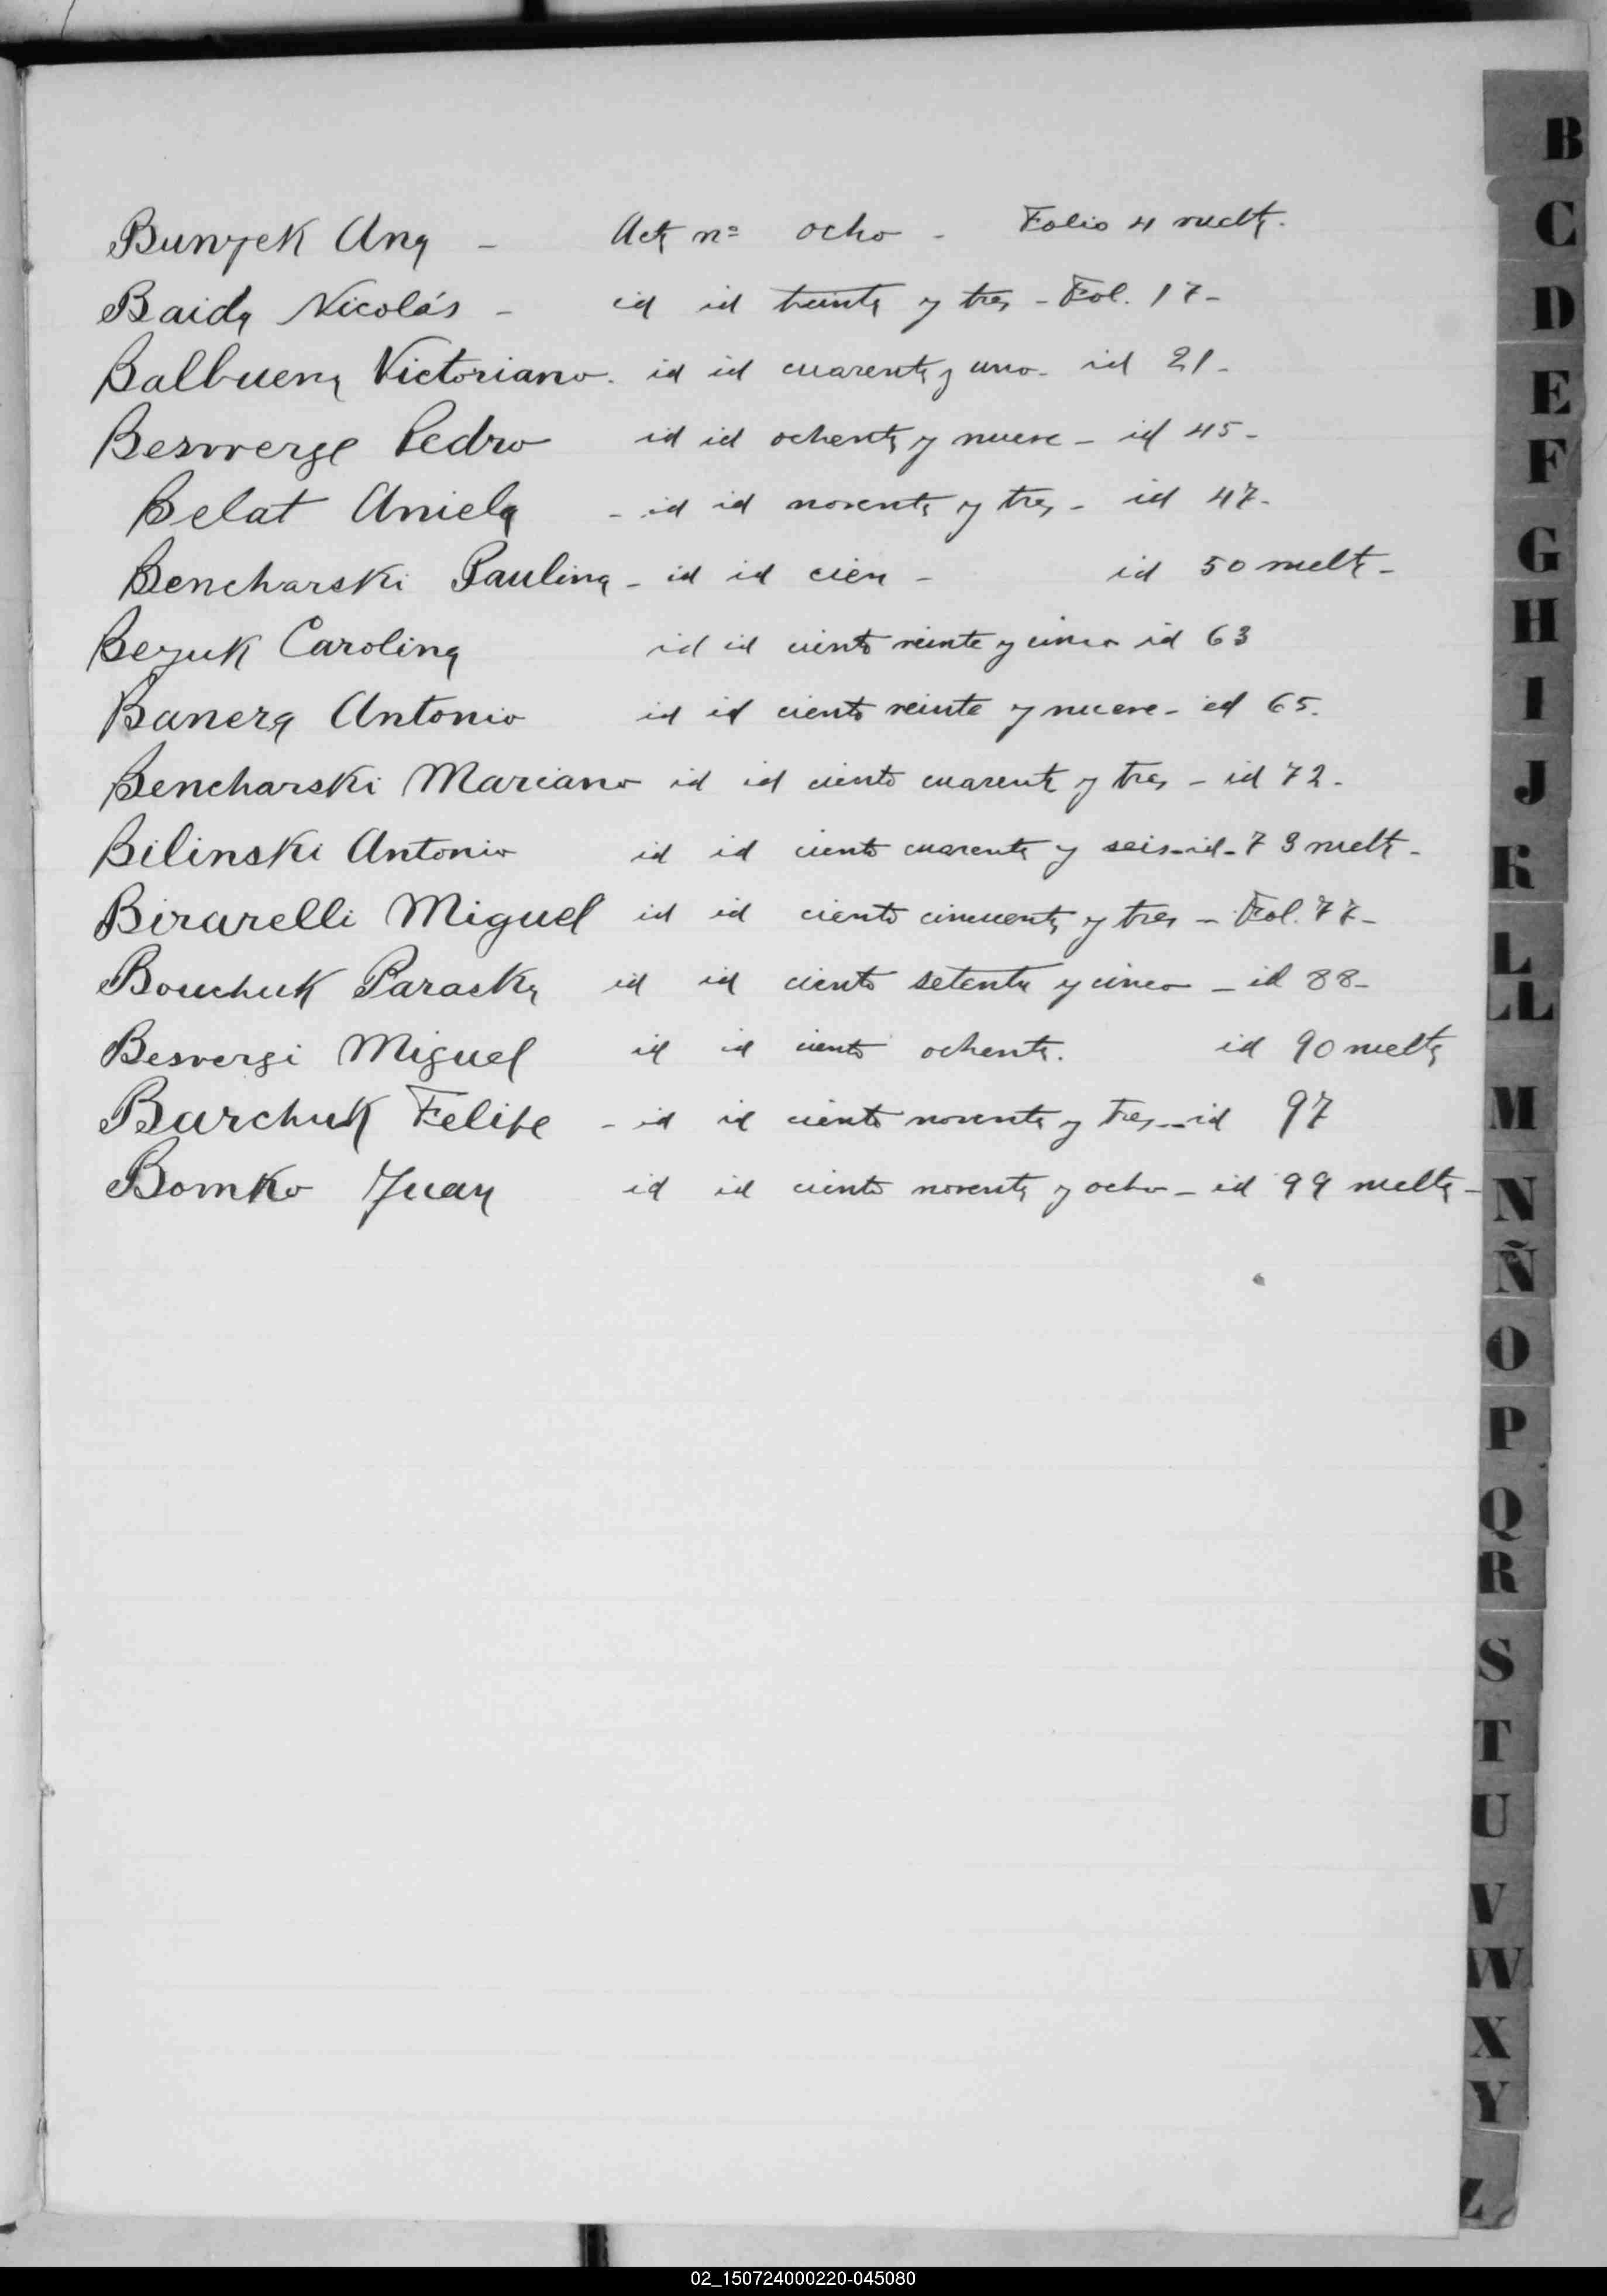 B
C
D
E
F
G
H
I
J
K
L
LL
M
N
Ñ
O
P
Q
R
S
T
U
V
W
X
Y
Z
Bunyek Ana - Acta nº ocho - Folio 4 vuelta.
Baida Nicolás - id id treinta y tres - Fol. 17-
Balbuena Victoriano. id id cuarenta y uno- id 21-
Besverge Pedro id id ochenta y nueve - id 45-
Belat Aniela - id id noventa y tres - id 47-
Bencharski Paulina - id id cien - id 50 vuelta -
Bezuk Carolina id id ciento veinte y cinco id 63
Banera Antonio id id ciento veinte y nueve - id 65.
Bencharski Mariano id id ciento cuarenta y tres - id 72-
Bilinski Antonio id id ciento cuarenta y seis-id-73 vuelta -
Birarelli Miguel id id ciento cincuenta y tres - Fol. 77-
Bouchuk Paraska id id ciento setenta y cinco - id 88-
Besvergi Miguel id id ciento ochenta. id 90 vuelta
Barchuk Felipe - id id ciento noventa y tres - id 97
Bomko Juan id id ciento noventa y ocho - id 99 vuelta -
02_150724000220-045080